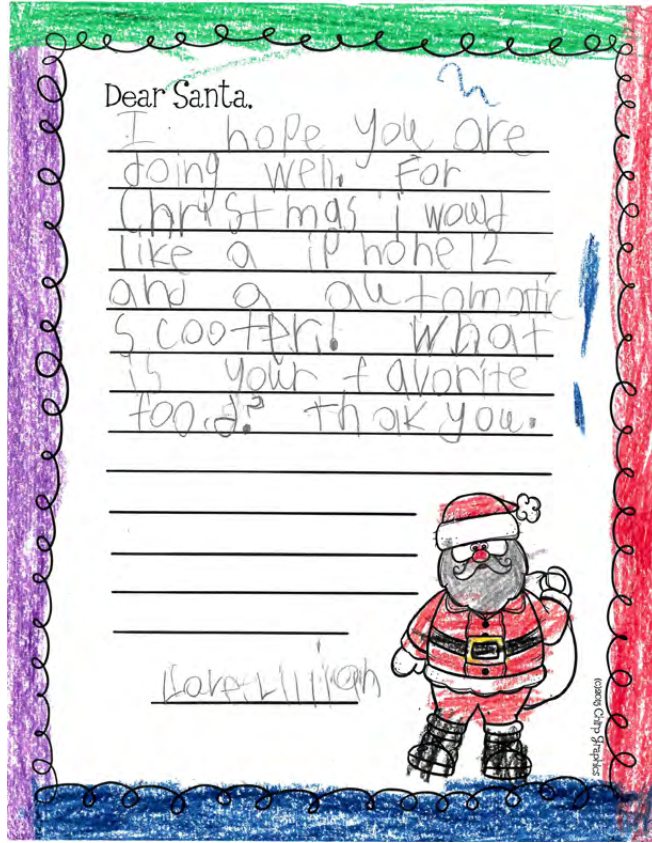 Dear Santa,
I hope you are
doing well. For
Christmas i would
like a iphone 12
and a automatic
scooter! What
is your favorite
food? thak you.
Love, Lillian
(c)2015 Chirp Graphics